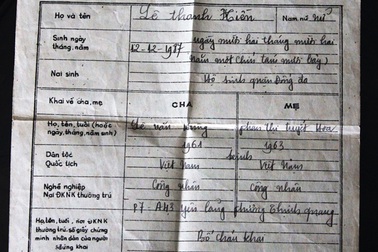 Họ và tên Lê Thanh Hiền Nam nữ nữ
Sinh ngày tháng, năm 12-12-1987 (ngày mười hai tháng mười hai
năm một chín tám mươi bảy)
Nơi sinh Hộ sinh quận Đống đa
Khai về cha, mẹ CHA MẸ
Họ, tên, tuổi (hoặc ngày, tháng, năm sinh) văn thị tuyết
1961 1963
Dân tộc kinh
Quốc tịch Việt Nam Việt Nam
Nghề nghiệp Công nhân Công nhân
Nơi ĐKNK thường trú P7 - A43 Yên lãng phường Thịnh quang
Họ, tên, tuổi, nơi ĐKNK
thường trú, số giấy chứng
minh nhân dân của người
đứng khai
Bố cháu khai